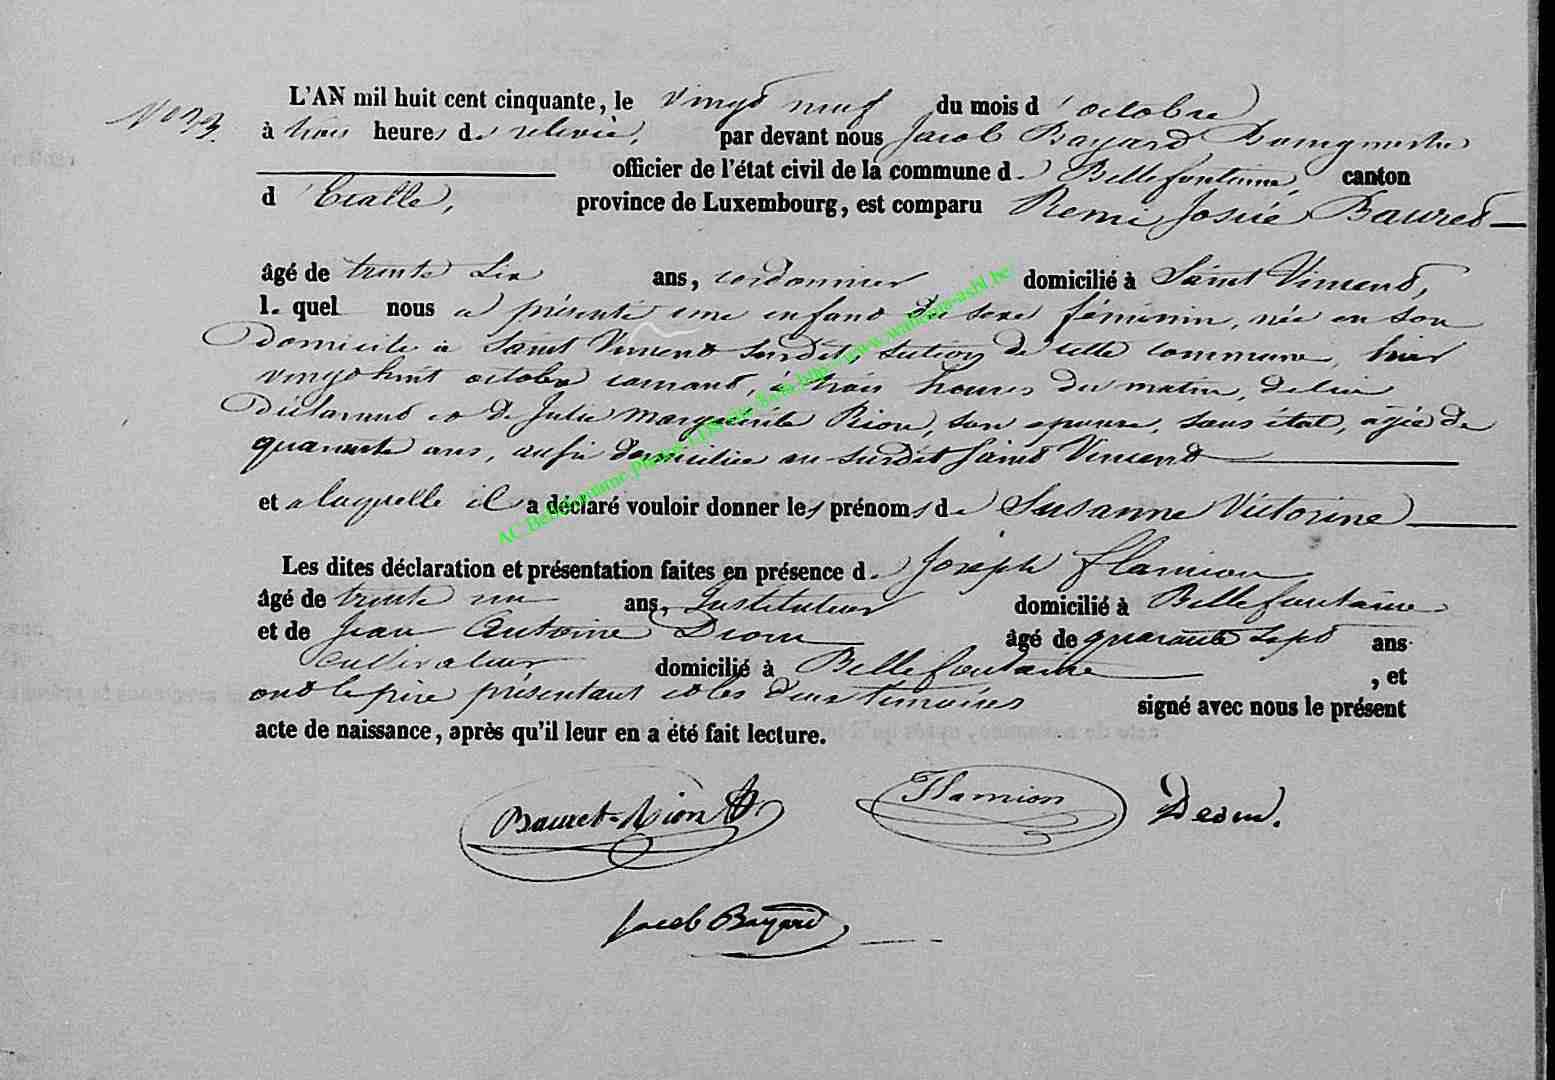 N° 33.
L'AN mil huit cent cinquante, le vingt neuf du mois d'octobre
à trois heures de relevée, par devant nous Jacob Bayard Bourgmestre
officier de l'état civil de la commune de Bellefontaine, canton
d'Etalle, province de Luxembourg, est comparu Remi Josué Bauret
âgé de trente six ans, cordonnier domicilié à Saint Vincent,
lequel nous a présenté une enfant du sexe féminin, née en son
Domicile à Saint Vincent susdit, section de cette commune, hier
vingt huit octobre courant, à trois heures du matin, de lui
Déclarant et de Julie Marguerite Rion, son épouse, sans état, agée de
quarante ans, aussi domiciliée au susdit Saint Vincent
et a laquelle il a déclaré vouloir donner les prénoms de Susanne Victorine
Les dites déclaration et présentation faites en présence de Joseph Flamion
âgé de trente un ans, Instituteur domicilié à Bellefontaine
et de Jean Antoine Drom âgé de quarante sept ans
Cultivateur domicilié à Bellefontaine, et
ont le père présentant et les deux témoins signé avec nous le présent
acte de naissance, après qu'il leur en a été fait lecture.
Bauret-Rion Flamion Drom.
Jacob Bayard